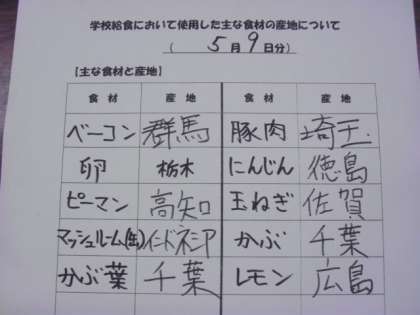 学校給食において使用した主な食材の産地について
( 5月9日分)
【主な食材と産地】
食材 産地 食材 産地
ベーコン 群馬 豚肉 埼玉
卵 栃木 にんじん 徳島
ピーマン 高知 玉ねぎ 佐賀
マッシュルーム(生) インドネシア かぶ 千葉
かぶ葉 千葉 レモン 広島